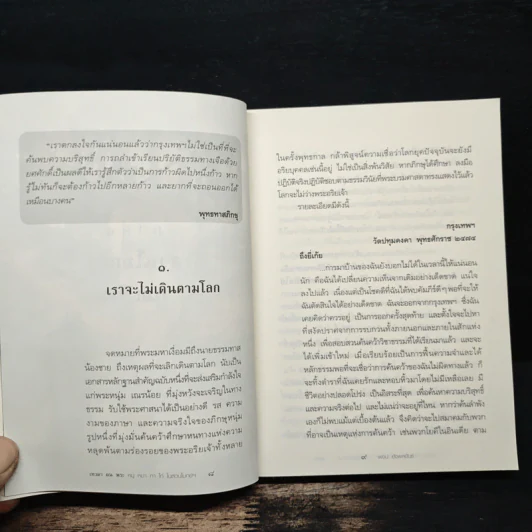 "เราตกลงใจกันแน่นอนแล้วว่ากรุงเทพฯไม่ใช่เป็นที่ที่จะ
ค้นพบความบริสุทธิ์ การถลำเข้าเรียนปริยัติธรรมทางเจือด้วย
ยศศักดิ์เป็นผลดีให้เรารู้สึกตัวว่าเป็นการก้าวผิดไปหนึ่งก้าว หาก
รู้ไม่ทันก็จะต้องก้าวไปอีกหลายก้าว และยากที่จะถอนออกได้
เหมือนบางคน"
พุทธทาสภิกขุ
๑.
เราจะไม่เดินตามโลก
จดหมายที่พระมหาเงื่อมมีถึงนายธรรมทาส
น้องชาย ถึงเหตุผลที่จะเลิกเดินตามโลก นับเป็น
เอกสารหลักฐานสำคัญฉบับหนึ่งที่จะส่งเสริมกำลังใจ
แก่พระหนุ่ม เณรน้อย ที่มุ่งหวังจะเจริญในทาง
ธรรม รับใช้พระศาสนาได้เป็นอย่างดี รส ความ
งามของภาษา และความจริงใจของภิกษุหนุ่ม
รูปหนึ่งที่มุ่งมั่นค้นคว้าศึกษาหนทางแห่งความ
หลุดพ้นตามร่องรอยของพระอริยเจ้าทั้งหลาย
๘
ในครั้งพุทธกาล กล้าพิสูจน์ความเชื่อว่าโลกยุคปัจจุบันจะยังมี
อริยบุคคลเช่นนี้อยู่ ไม่ใช่เป็นสิ่งพ้นวิสัย หากภิกษุได้ศึกษา ลงมือ
ปฏิบัติจริงปฏิบัติชอบตามธรรมวินัยที่พระบรมศาสดาทรงแสดงไว้แล้ว
โลกจะไม่ว่างพระอริยเจ้า
รายละเอียดมีดังนี้
กรุงเทพฯ
วัดปทุมคงคา พุทธศักราช ๒๔๗๔
ยี่เกย
การมาบ้านของฉันยังบอกไม่ได้ในเวลานี้ให้แน่นอน
นัก คือฉันได้เปลี่ยนความเห็นจากเดิมอย่างเด็ดขาด แน่ใจ
ลงไปแล้ว เนื่องแต่เป็นโชคดีที่ฉันได้พบคัมภีร์ดีๆ พอที่จะให้
ฉันตัดสินใจได้อย่างเด็ดขาด ฉันจะออกจากกรุงเทพฯ ซึ่งฉัน
เคยคิดว่าควรอยู่ เป็นการออกครั้งสุดท้าย และตั้งใจจะไปหา
ที่สงัดปราศจากการรบกวนทั้งภายนอกและภายในสักแห่ง
หนึ่ง เพื่อสอบสวนค้นคว้าวิชาธรรมที่ได้เรียนมาแล้ว และจะ
ได้เพิ่มเข้าใหม่ เมื่อเรียบร้อยเป็นการฟื้นความจำและได้
หลักธรรมพอที่จะเชื่อว่าการค้นคว้าของฉันไม่ผิดทางแล้ว ก็
จะทิ้งตำราที่ฉันเคยรักและหอบหิ้วมาโดยไม่มีเหลือเลย มี
ชีวิตอย่างปลอดโปร่ง เป็นอิสระที่สุด เพื่อค้นหาความบริสุทธิ์
และความจริงต่อไป และไม่แน่ว่าจะอยู่ที่ไหน หากว่าค้นลำพัง
เองก็ไม่พบแม้แต่เบื้องต้นแล้ว จึงคิดว่าจะไปสมาคมกับพวก
ที่อาจเป็นเหตุแห่งการค้นคว้า เช่นพวกโยคีในอินเดีย ตาม
๙